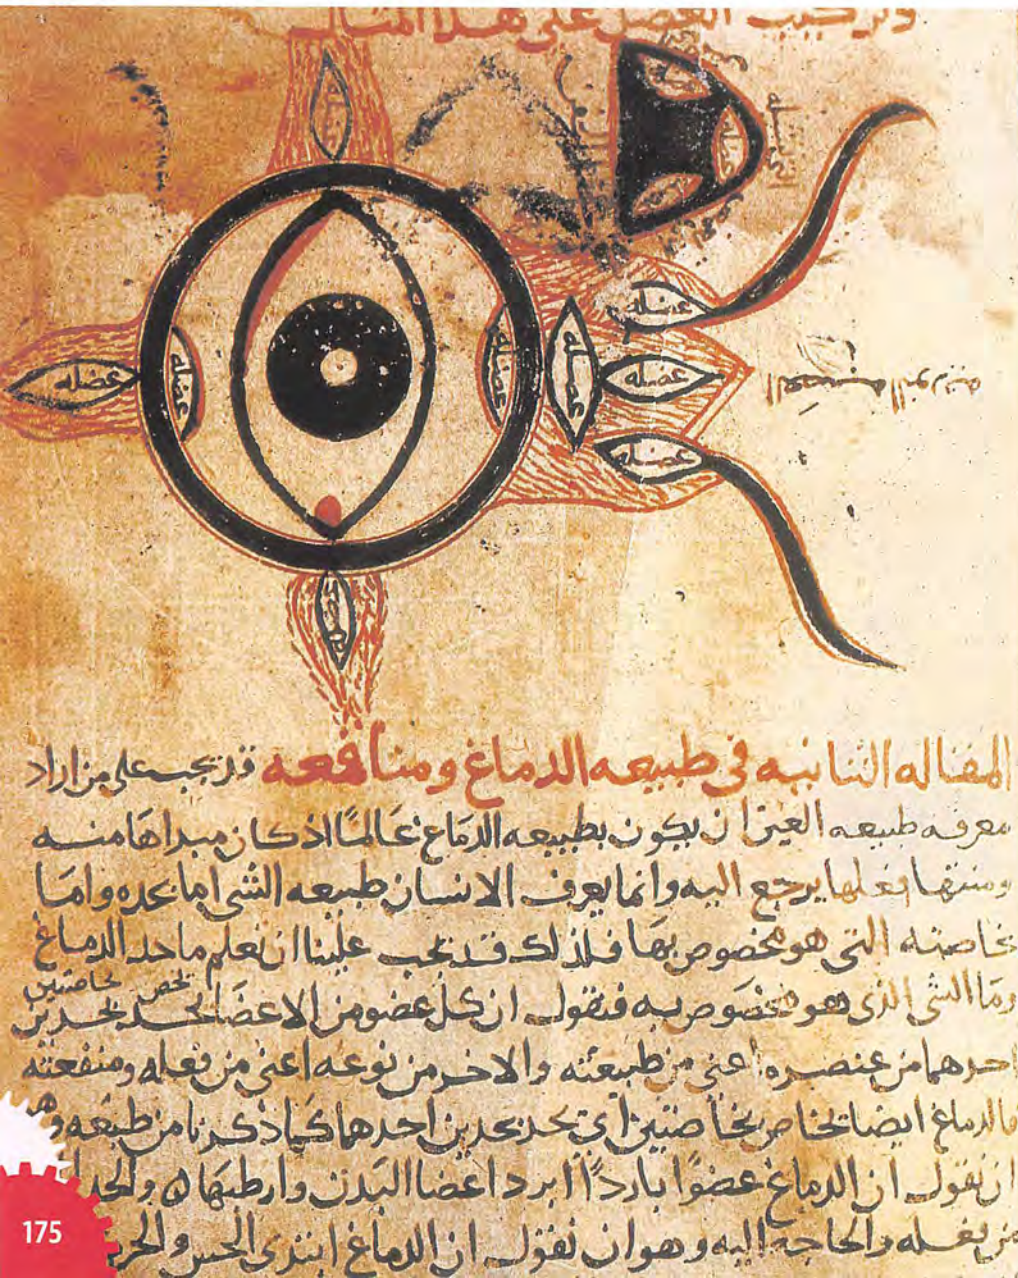 وتركيب العضل على هذا المثال
عضله
عضله
عضله
عضله
عضله
عضله
عضله
عضله
عضله
المقاله الثانيه في طبيعه الدماغ ومنافعه قد يجب على من اراد
معرفه طبيعه العين ان يكون بطبيعه الدماغ عالمًا اذ كان مبداها منه
ومنتها فعلها يرجع اليه وانما يعرف الانسان طبيعه الشي اما بحده واما
بخاصته التي هو مخصوص بها فلذلك قد يجب علينا ان نعلم ما حد الدماغ
وما الشي الذي هو مخصوص به فنقول ان كل عضو من الاعضا يحد بحدين
يخص بخاصتين
احدهما من عنصره اعني من طبيعته والاخر من نوعه اعني من فعله ومنفعته
فالدماغ ايضا بخاصتين اي يحد بحدين احدهما كما ذكرنا من طبعه وهو
ان نقول ان الدماغ عضوًا باردًا ابرد اعضا البدن وارطبها
من فعله والحاجه اليه وهو ان نقول ان الدماغ ابتدى الحس
175